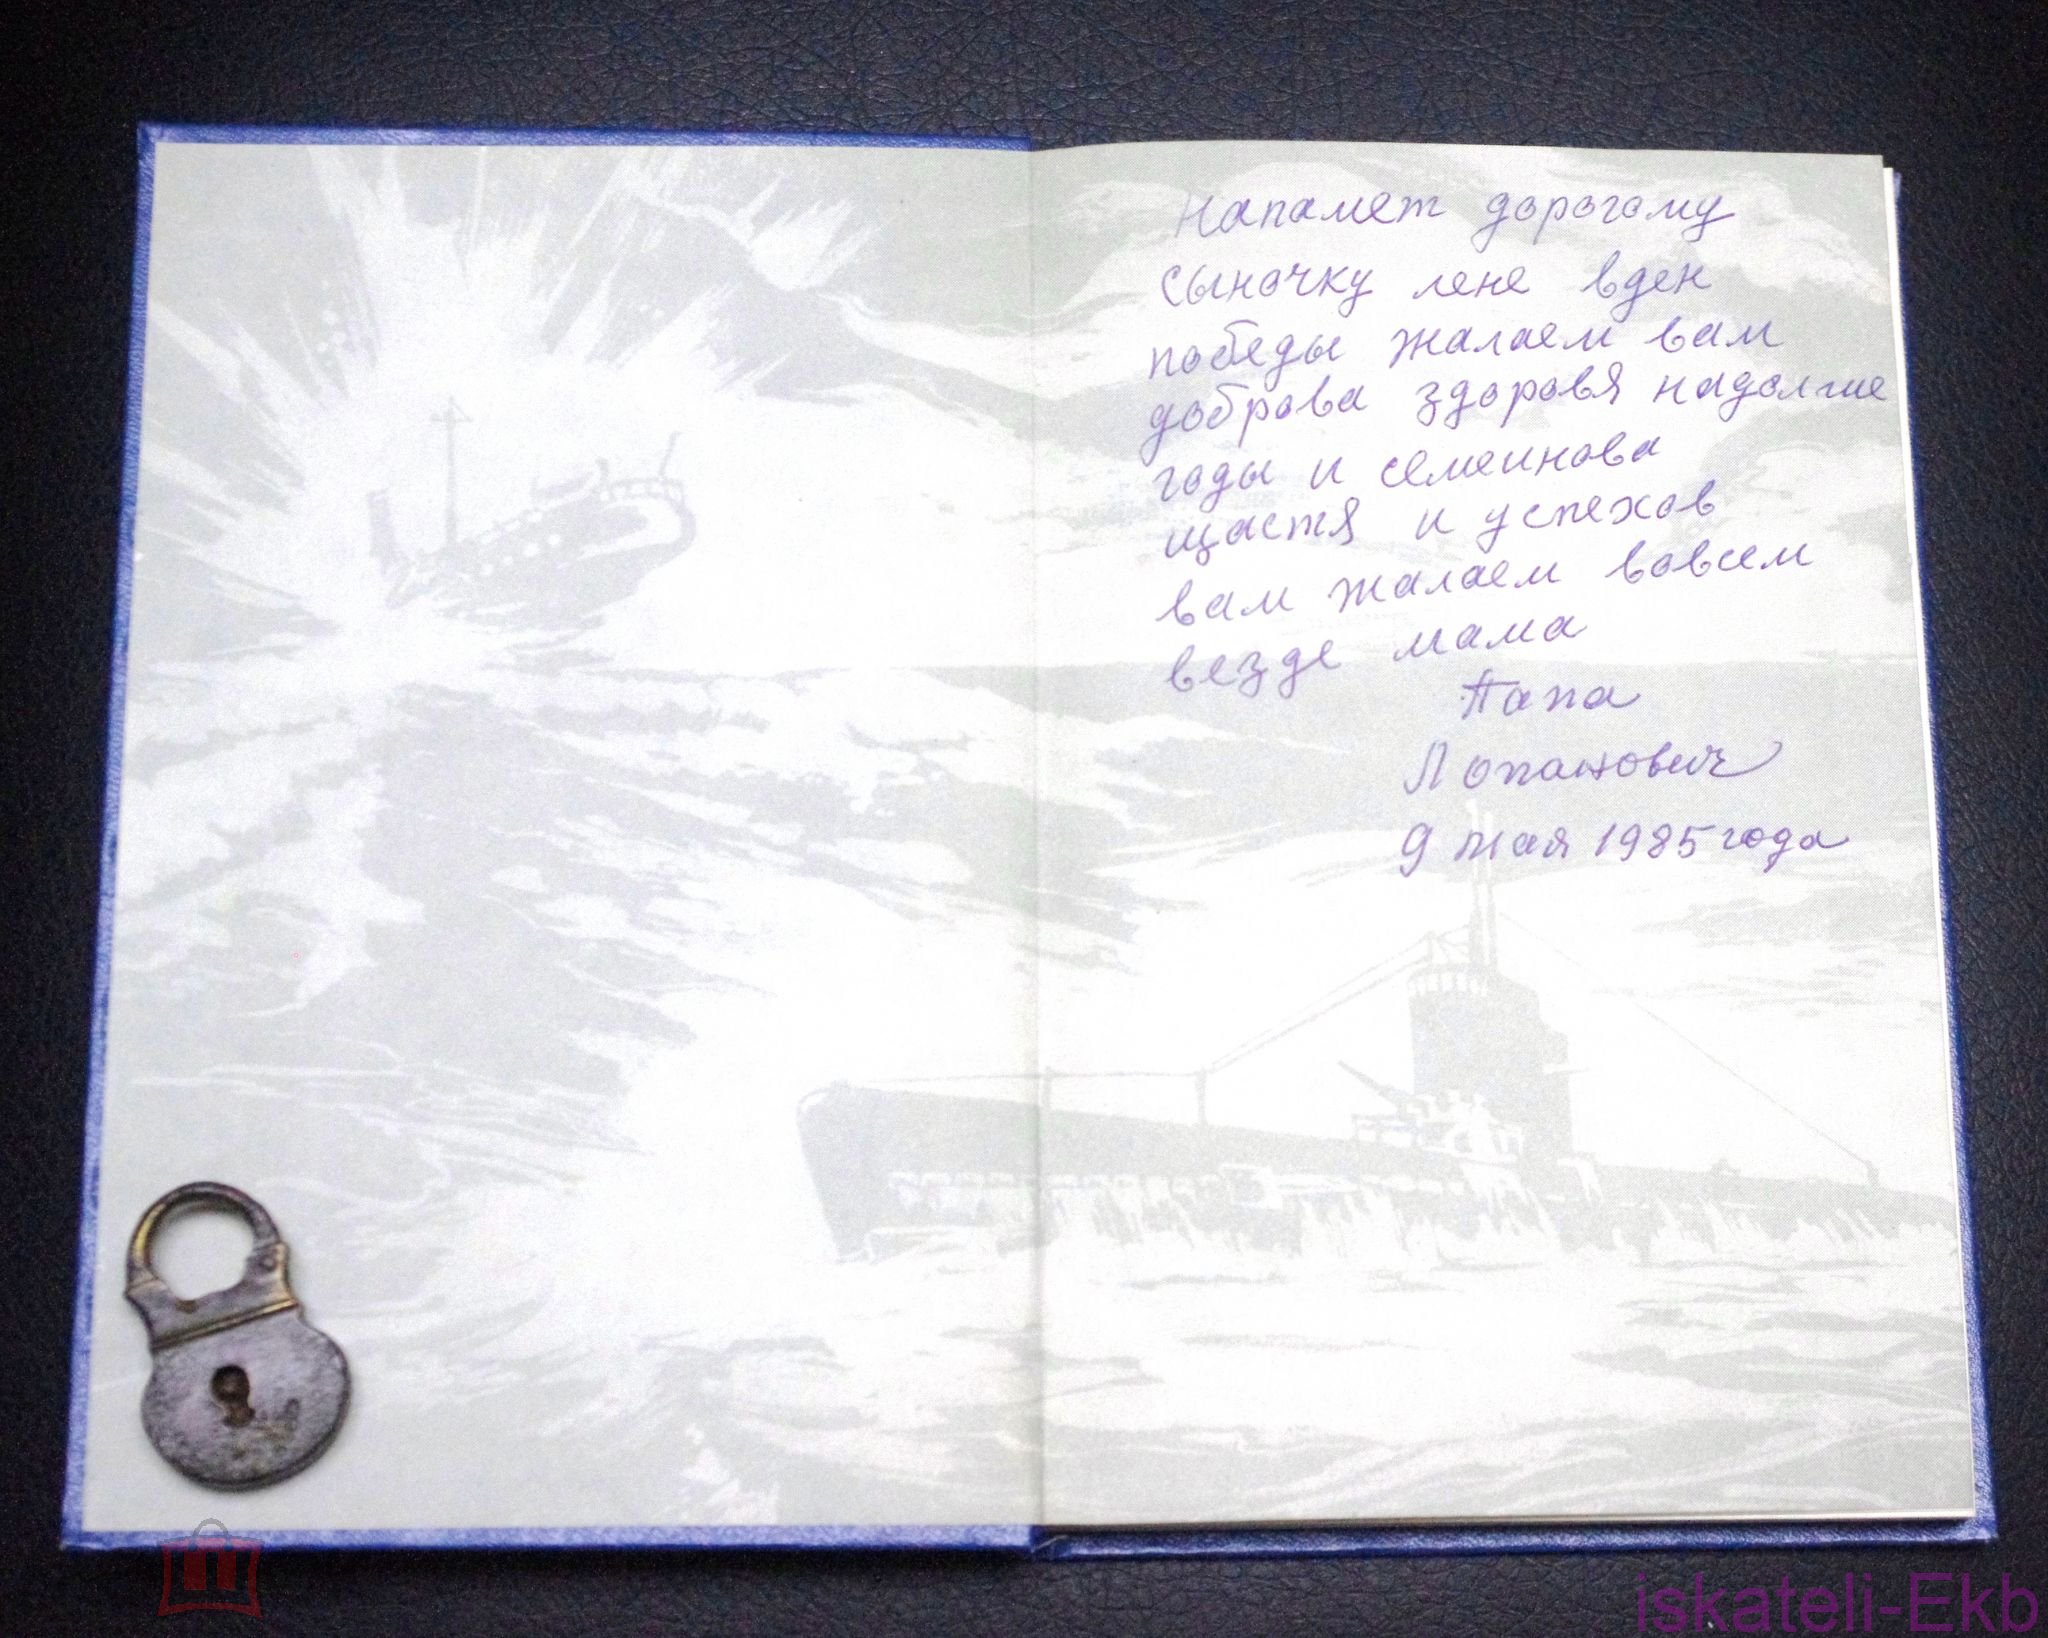 Напамет дорогому
сыночку лене вден
победы жалаем вам
доброва здоровя надолгие
годы и семеинова
щастя и успехов
вам жалаем вовсем
везде мама
Папа
9 мая 1985 года
iskateli-Ekb